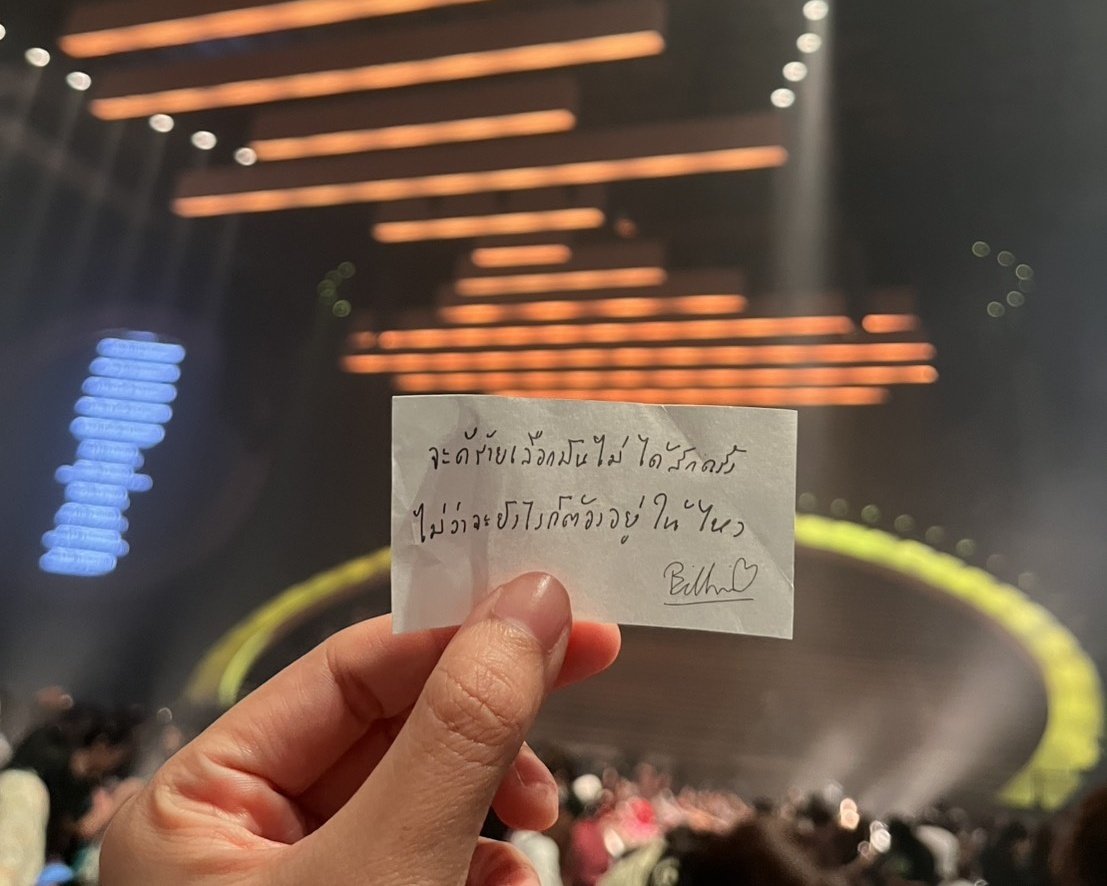 จะดีร้ายเลือกมันไม่ได้สักครั้ง
ไม่ว่าจะยังไงก็ต้องอยู่ให้ไหว
Billkin♡